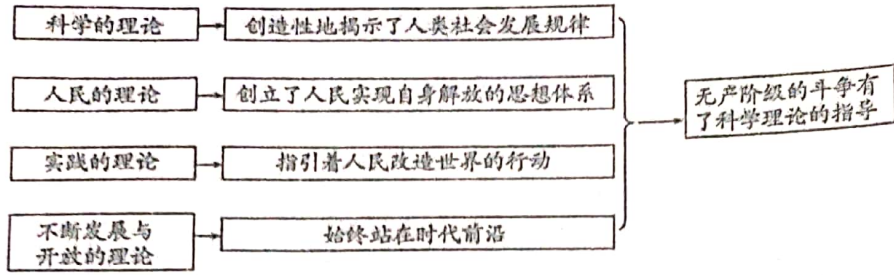 科学的理论
创造性地揭示了人类社会发展规律
人民的理论
创立了人民实现自身解放的思想体系
实践的理论
指引着人民改造世界的行动
不断发展与
开放的理论
始终站在时代前沿
无产阶级的斗争有
了科学理论的指导